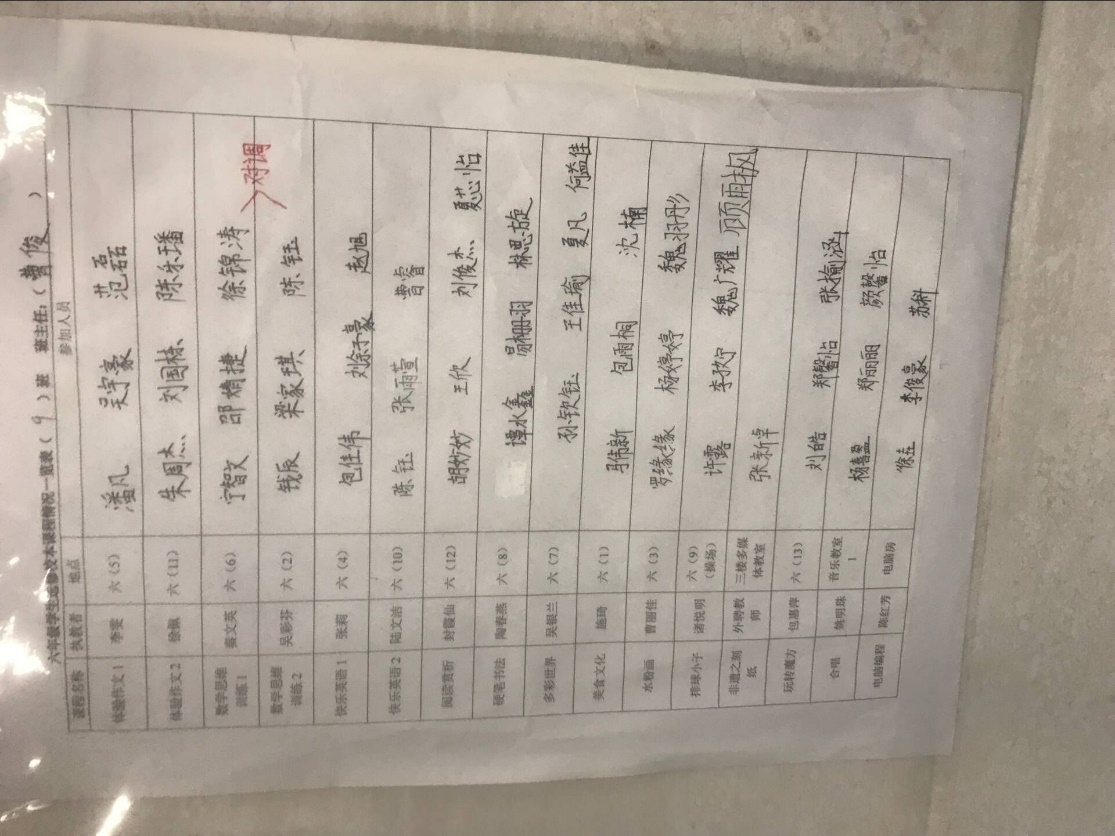 六年级学生选修校本课程情况一览表（ 9 ）班 班主任：（ 曹俊 ）
课程名称 执教者 地点 参加人员
体验作文1 李雯 六（5） 潘凡 吴宇豪 范磊
体验作文2 徐佩 六（11） 朱周杰 刘国栋 陈乐璠
数学思维训练1 秦文英 六（6） 宁智文 邵熵捷 徐锦涛
对调
数学思维训练2 吴彩芬 六（2） 钱辰 梁家琪 陈钰
快乐英语1 张莉 六（4） 包佳伟 刘徐子豪 赵旭
快乐英语2 陆文洁 六（10） 陈钰 张雨萱 曹睿
阅读赏析 封霞仙 六（12） 胡妙妙 王欣 刘俊杰 夏芯怡
硬笔书法 陶春燕 六（8） 谭水鑫 易栅羽 林思旋
多彩世界 吴银兰 六（7） 孙钦钰 王佳瑜 夏凡 何益佳
美食文化 施琦 六（1） 马伟新 包雨桐 沈楠
水粉画 曹丽佳 六（3） 罗缘缘 杨婷婷 魏羽彤
排球小子 诸悦明 六（9）（操场） 许露 李欣宁 魏广耀 顾雨枫
非遗之刻纸 外聘教师 三楼多媒体教室 张新卓
玩转魔方 包惠萍 六（13） 刘皓 郑馨怡 张揄涵
合唱 姚明珠 音乐教室1 杨喜盈 郑丽丽 颜馨怡
电脑编程 陈红芳 电脑房 徐立 李俊豪 苏科